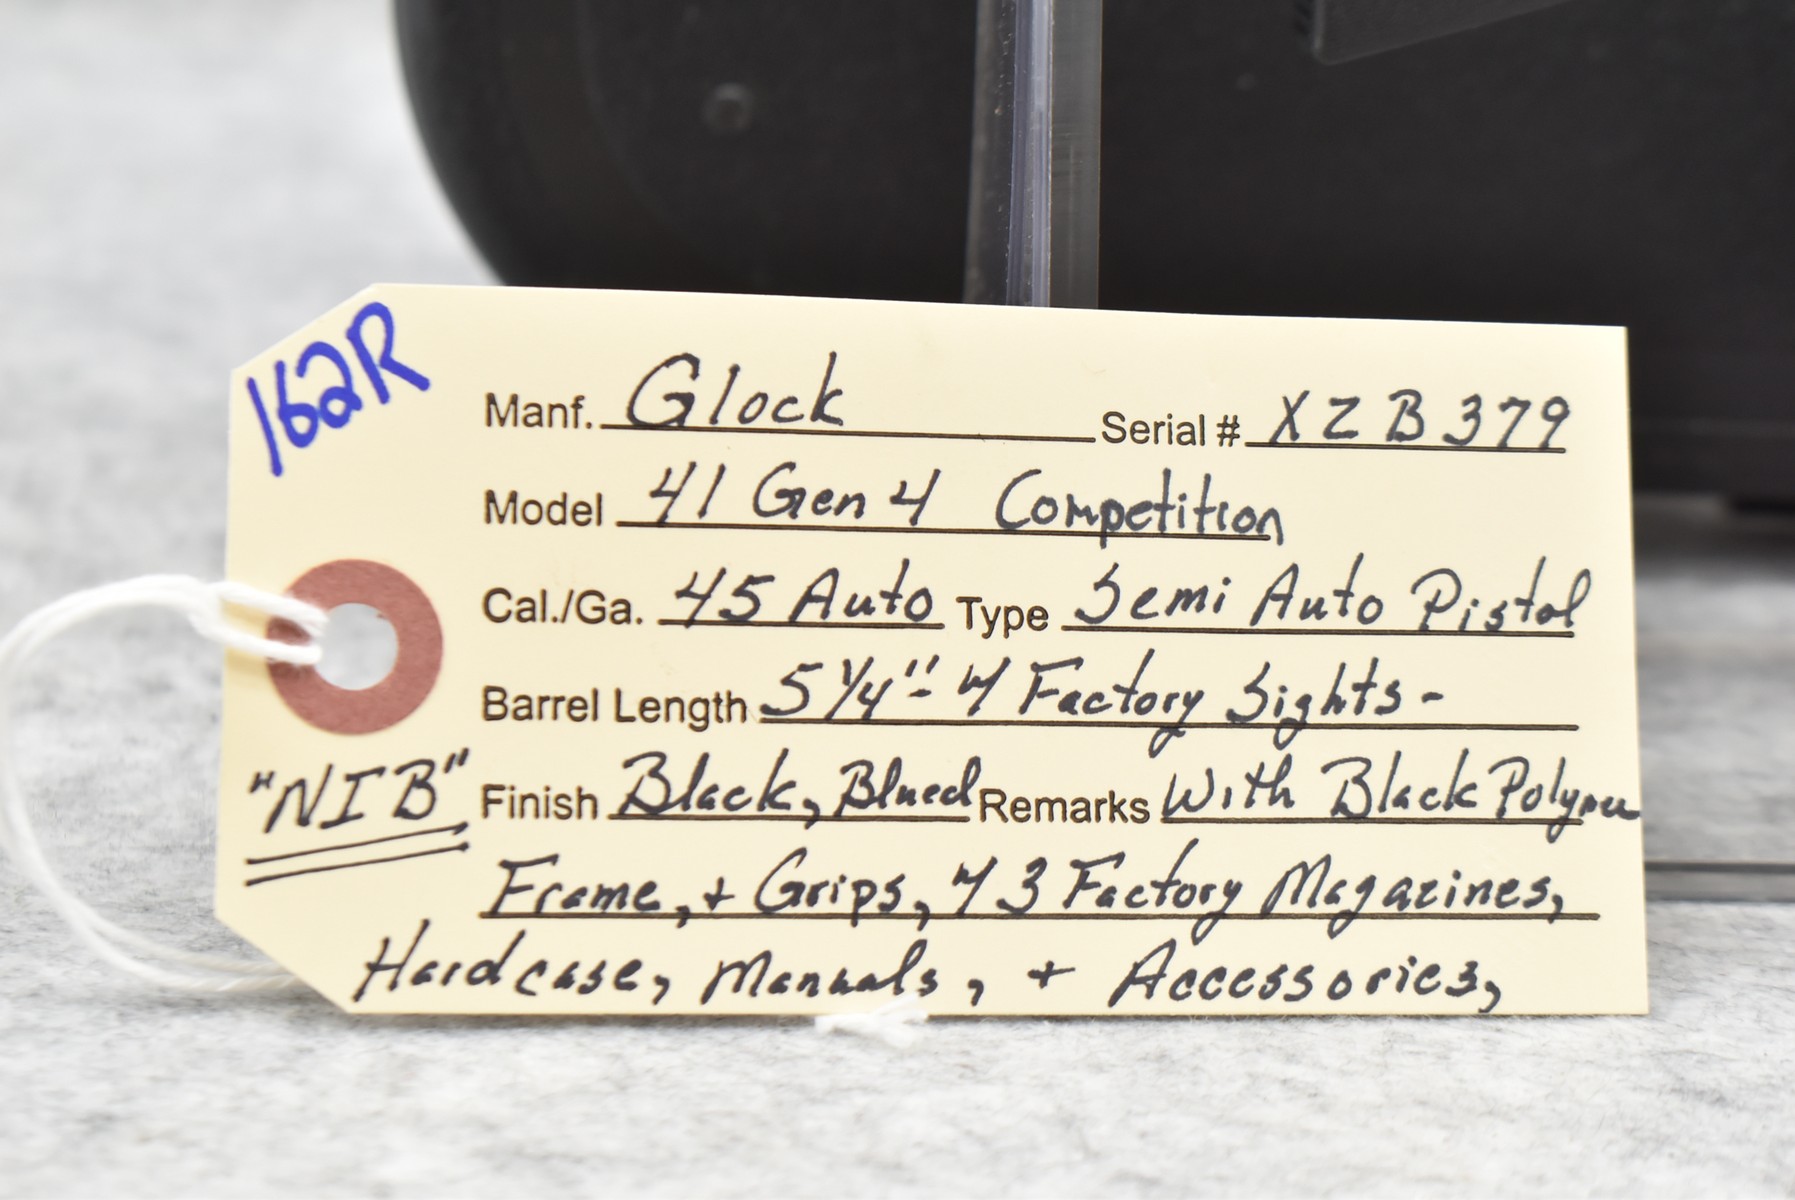 162R
Manf. Glock Serial # XZB379
Model 41 Gen 4 Competition
Cal./Ga. 45 Auto Type Semi Auto Pistol
Barrel Length 5 1/4" - 4 Factory Sights -
"NIB" Finish Black, Blued Remarks With Black Polymer
Frame, + Grips, 4 3 Factory Magazines,
Hardcase, Manuals, + Accessories,